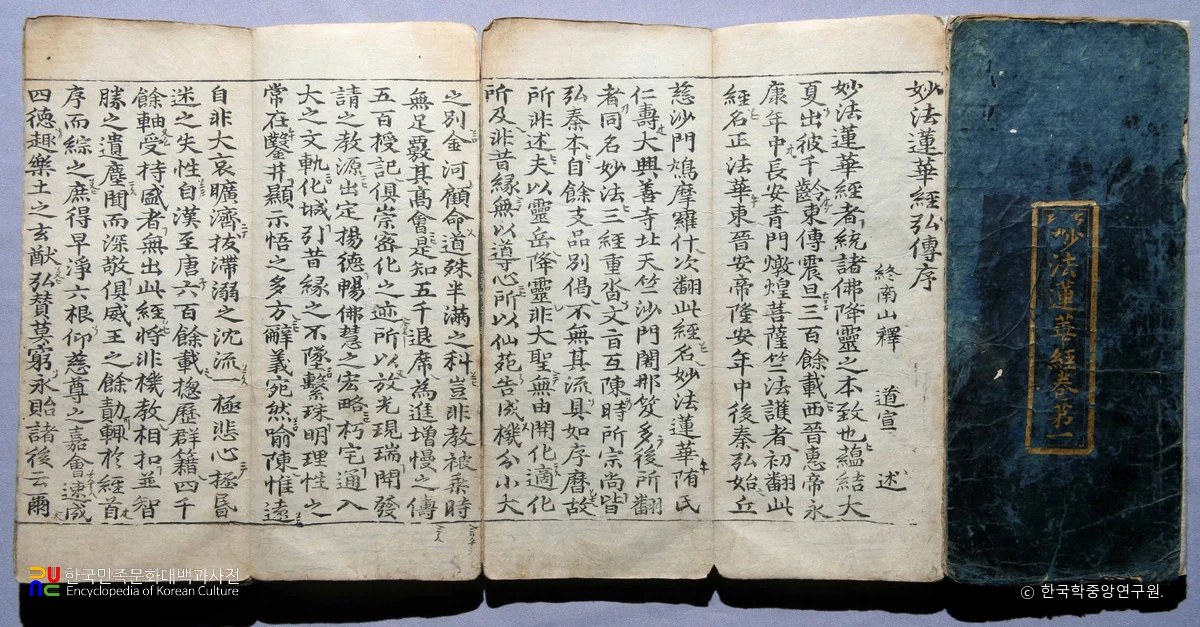 妙法蓮華經卷第一
妙法蓮華經弘傳序
終南山釋 道宣 述
妙法蓮華經者統諸佛降靈之本致也蘊結大
夏出彼千齡東傳震旦三百餘載西晉惠帝永
康年中長安青門燉煌菩薩竺法護者初翻此
經名正法華東晉安帝隆安年中後秦弘始丘
慈沙門鳩摩羅什次翻此經名妙法蓮華隋氏
仁壽大興善寺北天竺沙門闍那笈多後所翻
者同名妙法三經重沓文旨互陳時所宗尚皆
弘秦本自餘支品別偈不無其流具如序曆故
所非述夫以靈岳降靈非大聖無由開化適化
所及非昔緣無以導心所以仙苑告成機分小大
之別金河顧命道殊半滿之科豈非教被乘時
無足覈其高會是知五千退席為進增慢之儔
五百授記俱崇密化之迹所以放光現瑞開發
請之教源出定揚德暢佛慧之宏略朽宅通入
大之文軌化城引昔緣之不墜繫珠明理性之
常在鑿井顯示悟之多方辭義宛然喻陳惟遠
自非大哀曠濟拔滯溺之沈流一極悲心拯昏
迷之失性自漢至唐六百餘載摠歷群籍四千
餘軸受持盛者無出此經將非機教相扣並智
勝之遺塵聞而深敬俱威王之餘勣輒於經首
序而綜之庶得早淨六根仰慈尊之嘉會速成
四德趣樂土之玄猷弘贊莫窮永貽諸後云爾
한국민족문화대백과사전
Encyclopedia of Korean Culture
ⓒ 한국학중앙연구원.